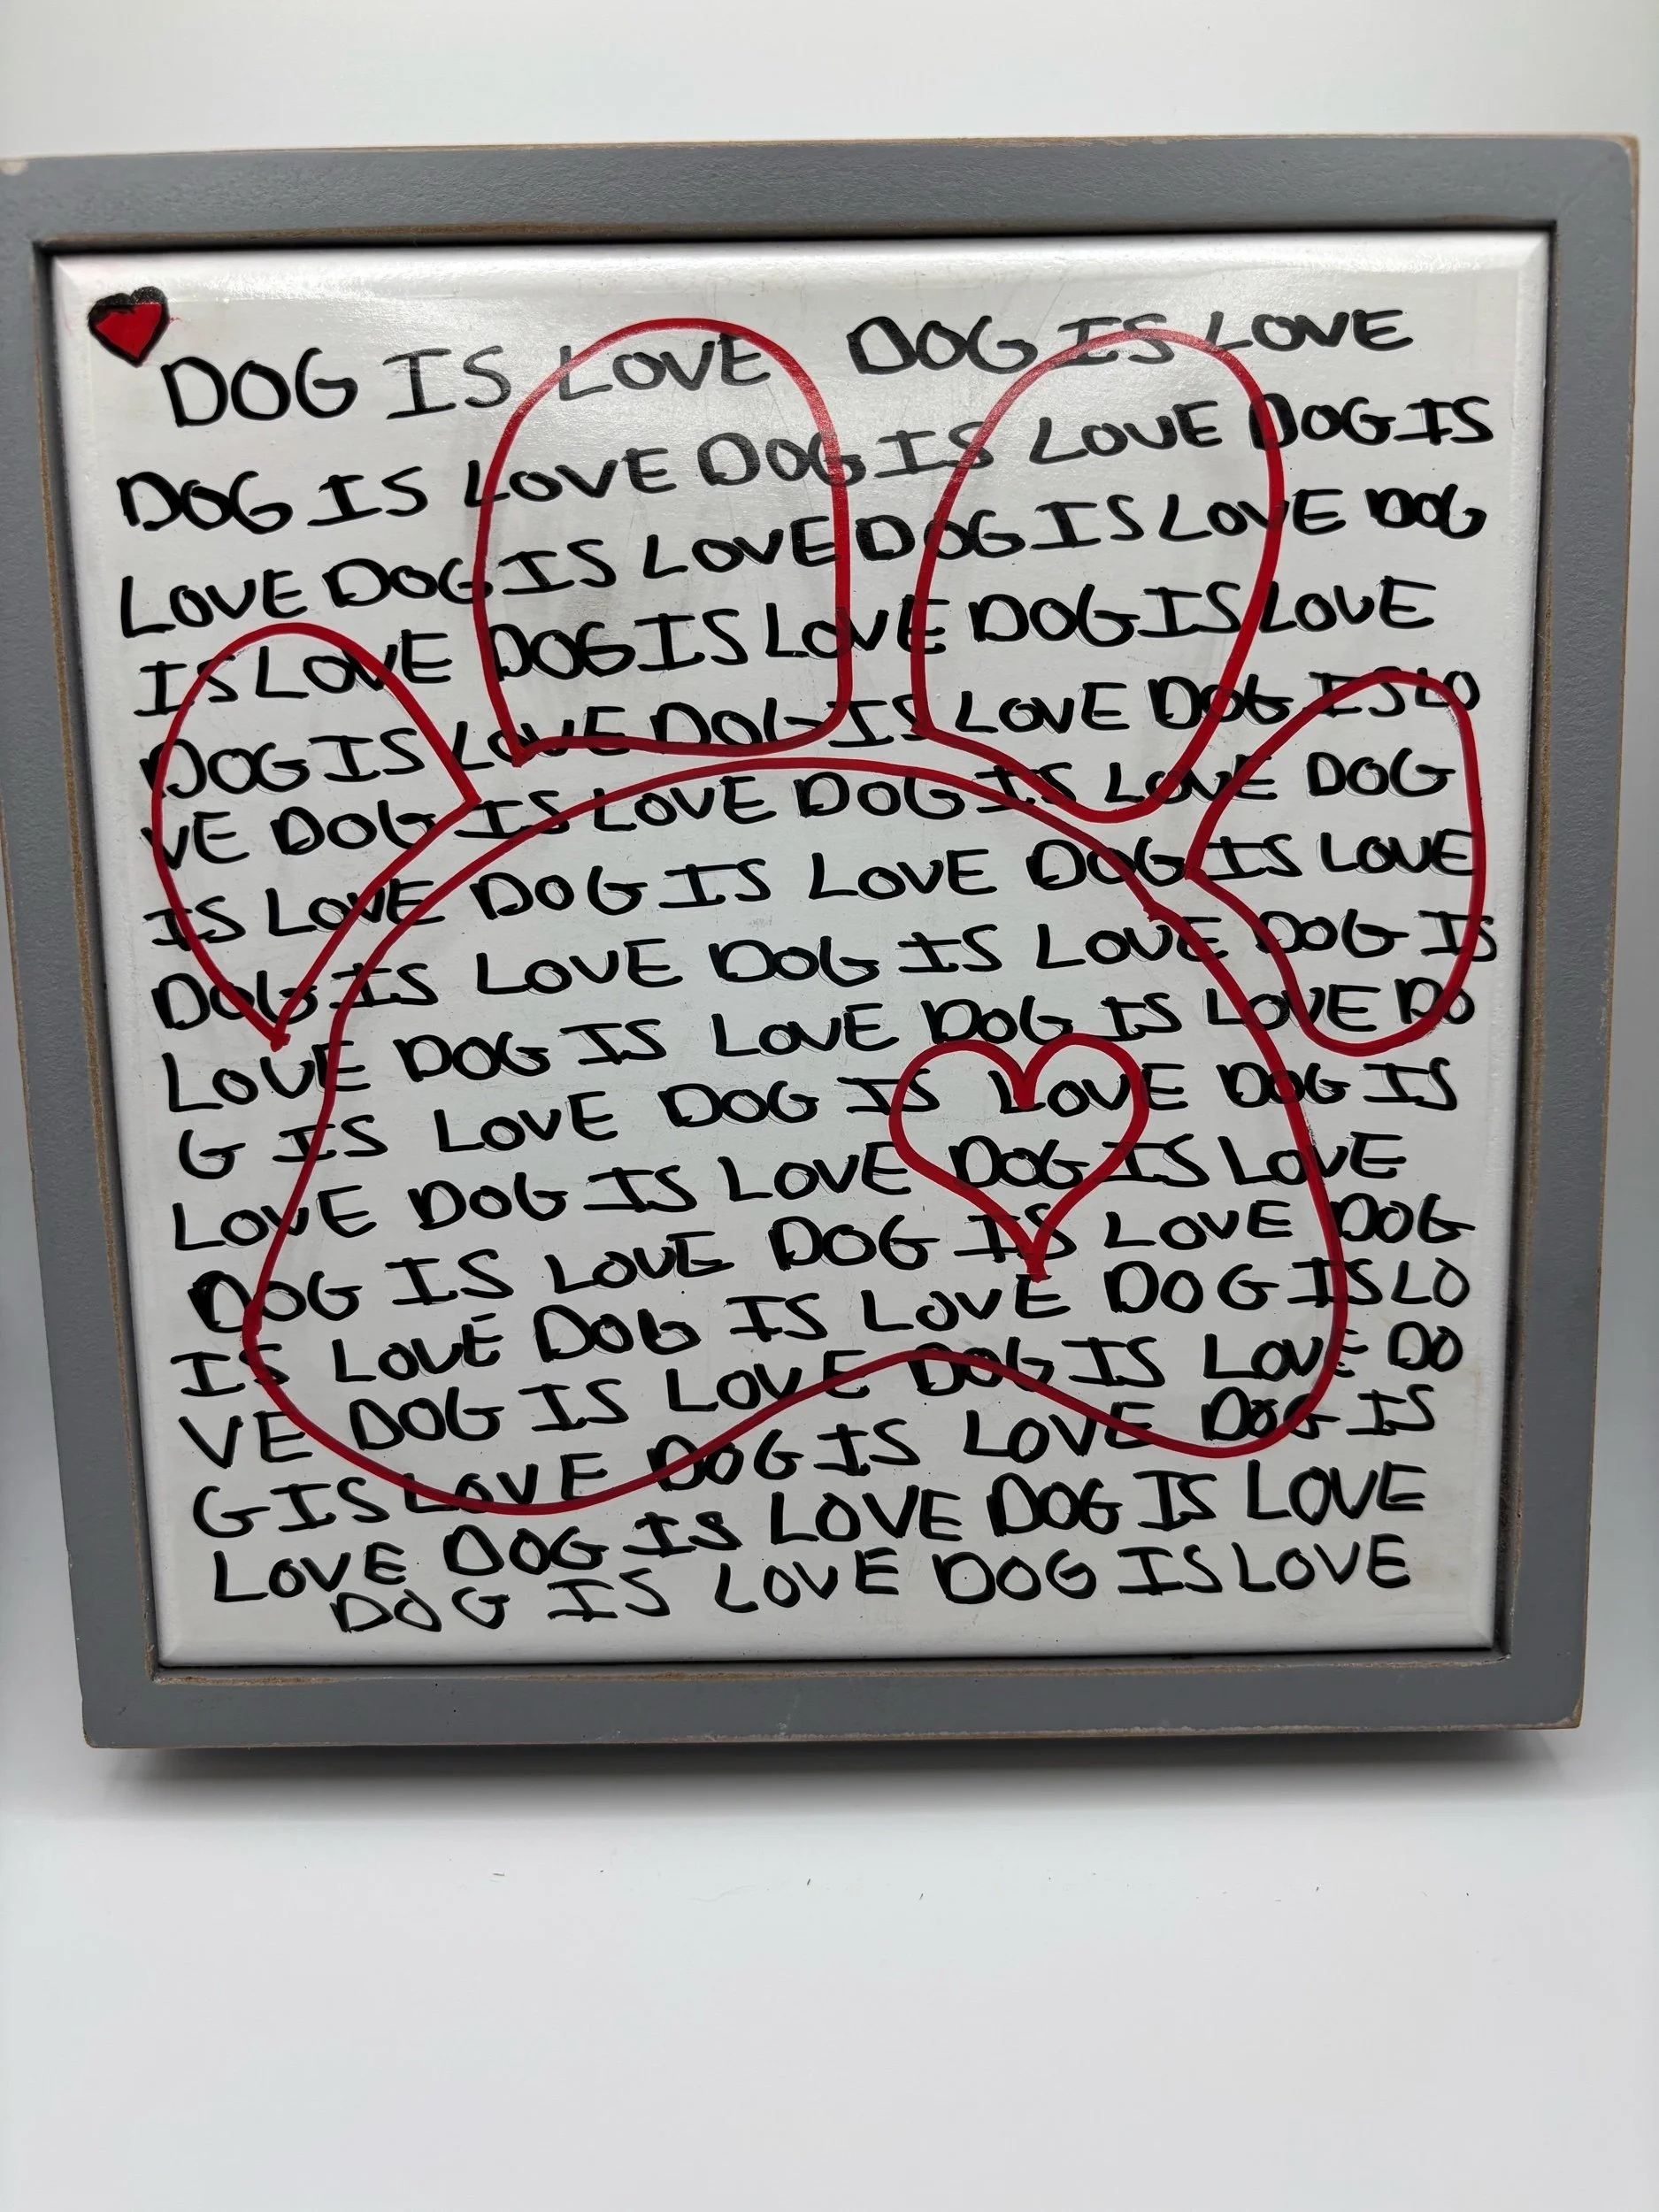 DOG IS LOVE DOG IS LOVE
DOG IS LOVE DOG IS LOVE DOG IS
LOVE DOG IS LOVE DOG IS LOVE DOG
IS LOVE DOG IS LOVE DOG IS LOVE
DOG IS LOVE DOG IS LOVE DOG IS LO
VE DOG IS LOVE DOG IS LOVE DOG
IS LOVE DOG IS LOVE DOG IS LOVE
DOG IS LOVE DOG IS LOVE DOG IS
LOVE DOG IS LOVE DOG IS LOVE DO
G IS LOVE DOG IS LOVE DOG IS
LOVE DOG IS LOVE DOG IS LOVE
DOG IS LOVE DOG IS LOVE DOG
IS LOVE DOG IS LOVE DOG IS LO
VE DOG IS LOVE DOG IS LOVE DO
G IS LOVE DOG IS LOVE DOG IS
LOVE DOG IS LOVE DOG IS LOVE
DOG IS LOVE DOG IS LOVE